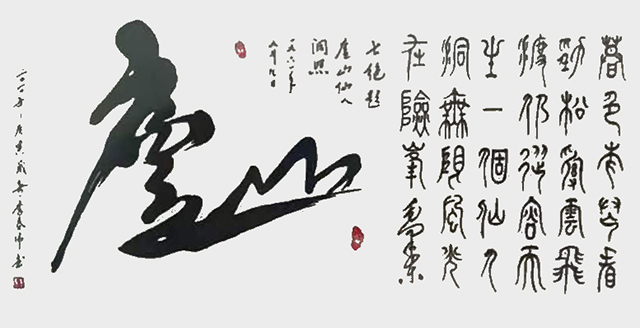 暮色蒼茫看
勁松亂雲飛
渡仍從容天
生一個仙人
洞無限風光
在險峯
七絕題
庐山仙人
洞照
一九六一年
九月九日
廬山